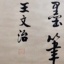 墨筆
王文治